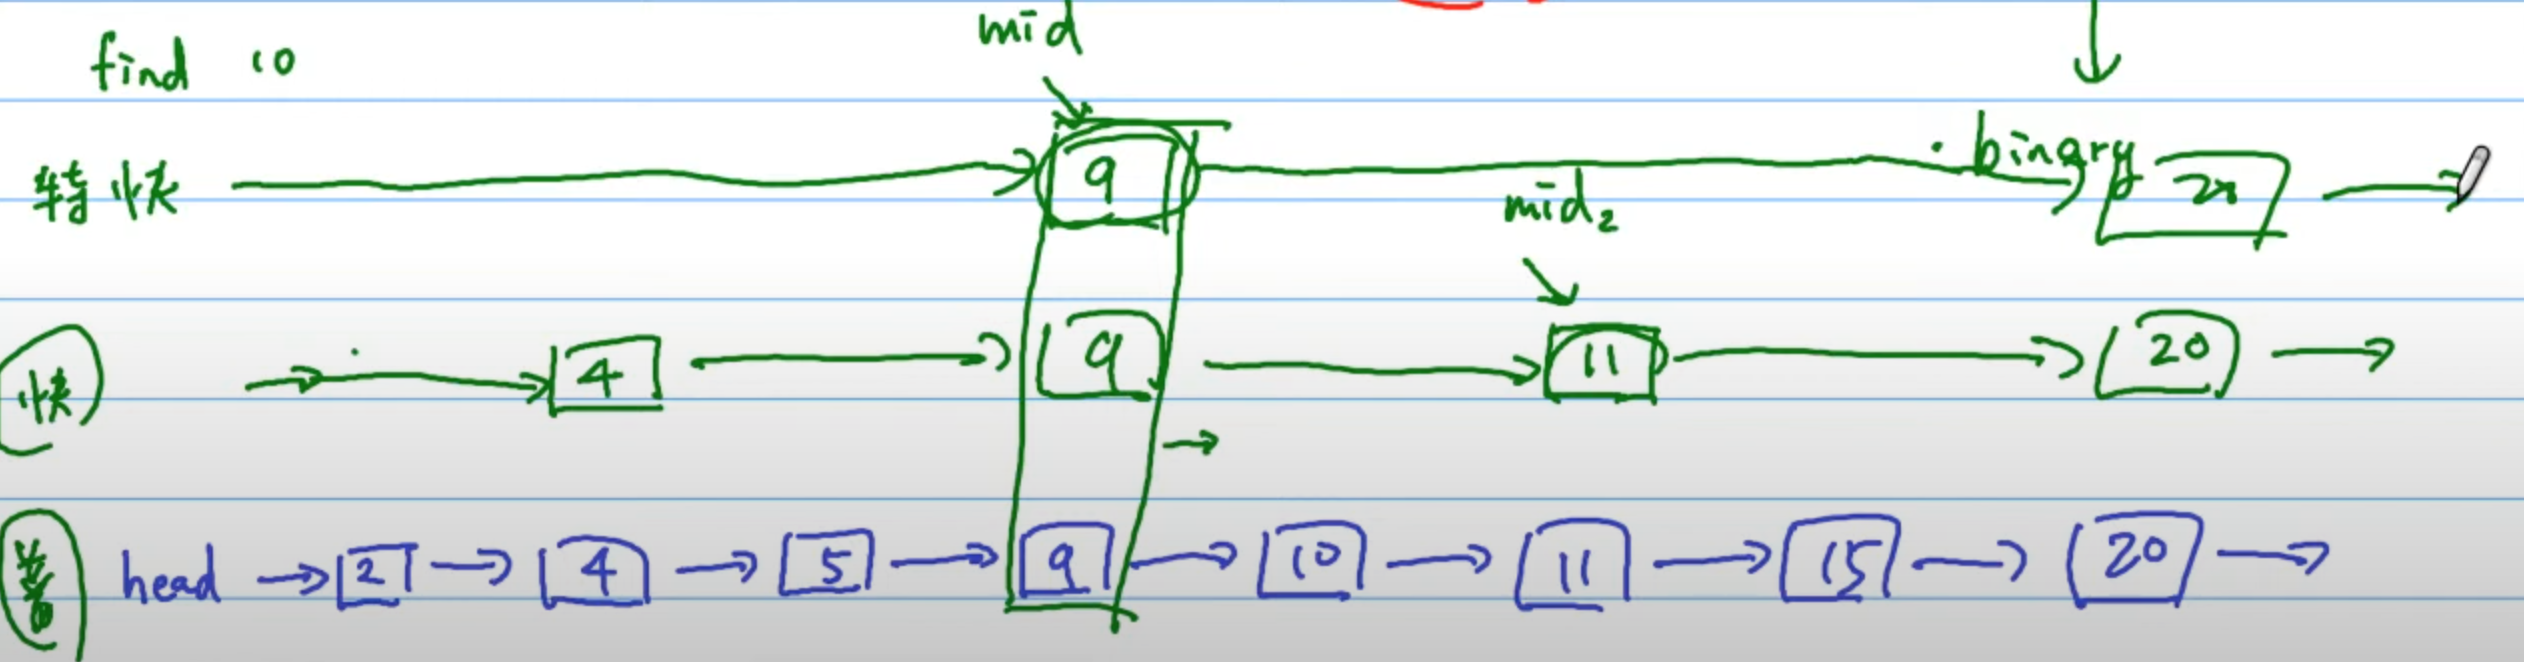 mid
find 10
特快 9 binary
mid2
快 4 9 11 20
普 head 2 4 5 9 10 11 15 20